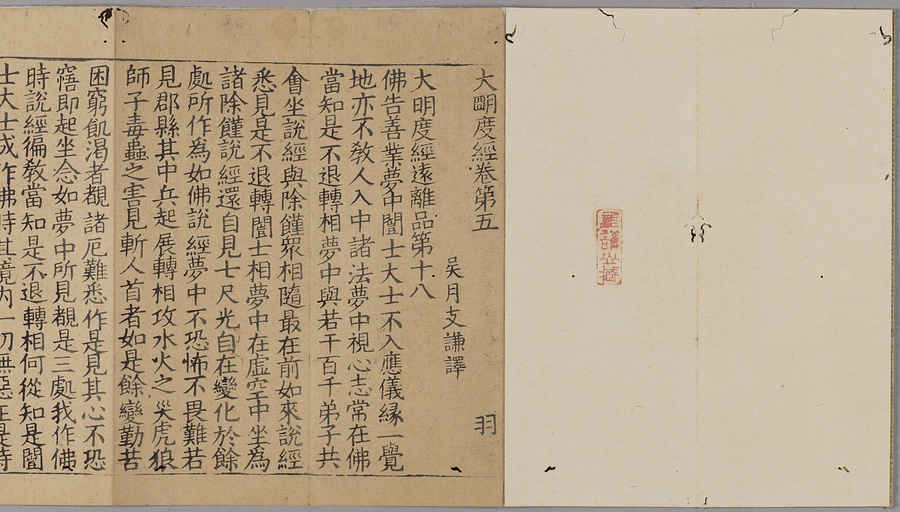 大明度經卷第五
羽
吳月支謙譯
大明度經遠離品第十八
佛告善業夢中闓士大士不入應儀緣一覺
地亦不教人入中諸法夢中視心志常在佛
當知是不退轉相夢中與若干百千弟子共
會坐說經與除饉眾相隨最在前如來說經
悉見是不退轉闓士相夢中在虛空中坐為
諸除饉說經還自見七尺光自在變化於餘
處所作為如佛說經夢中不恐怖不畏難若
見郡縣其中兵起展轉相攻水火之災虎狼
師子毒蟲之害見斬人首者如是餘變勤苦
困窮飢渴者覩諸厄難悉作是見其心不恐
寤即起坐念如夢中所見覩是三處我作佛
時說經徧教當知是不退轉相何從知是闓
士大士成作佛時其境內一切無惡正是時